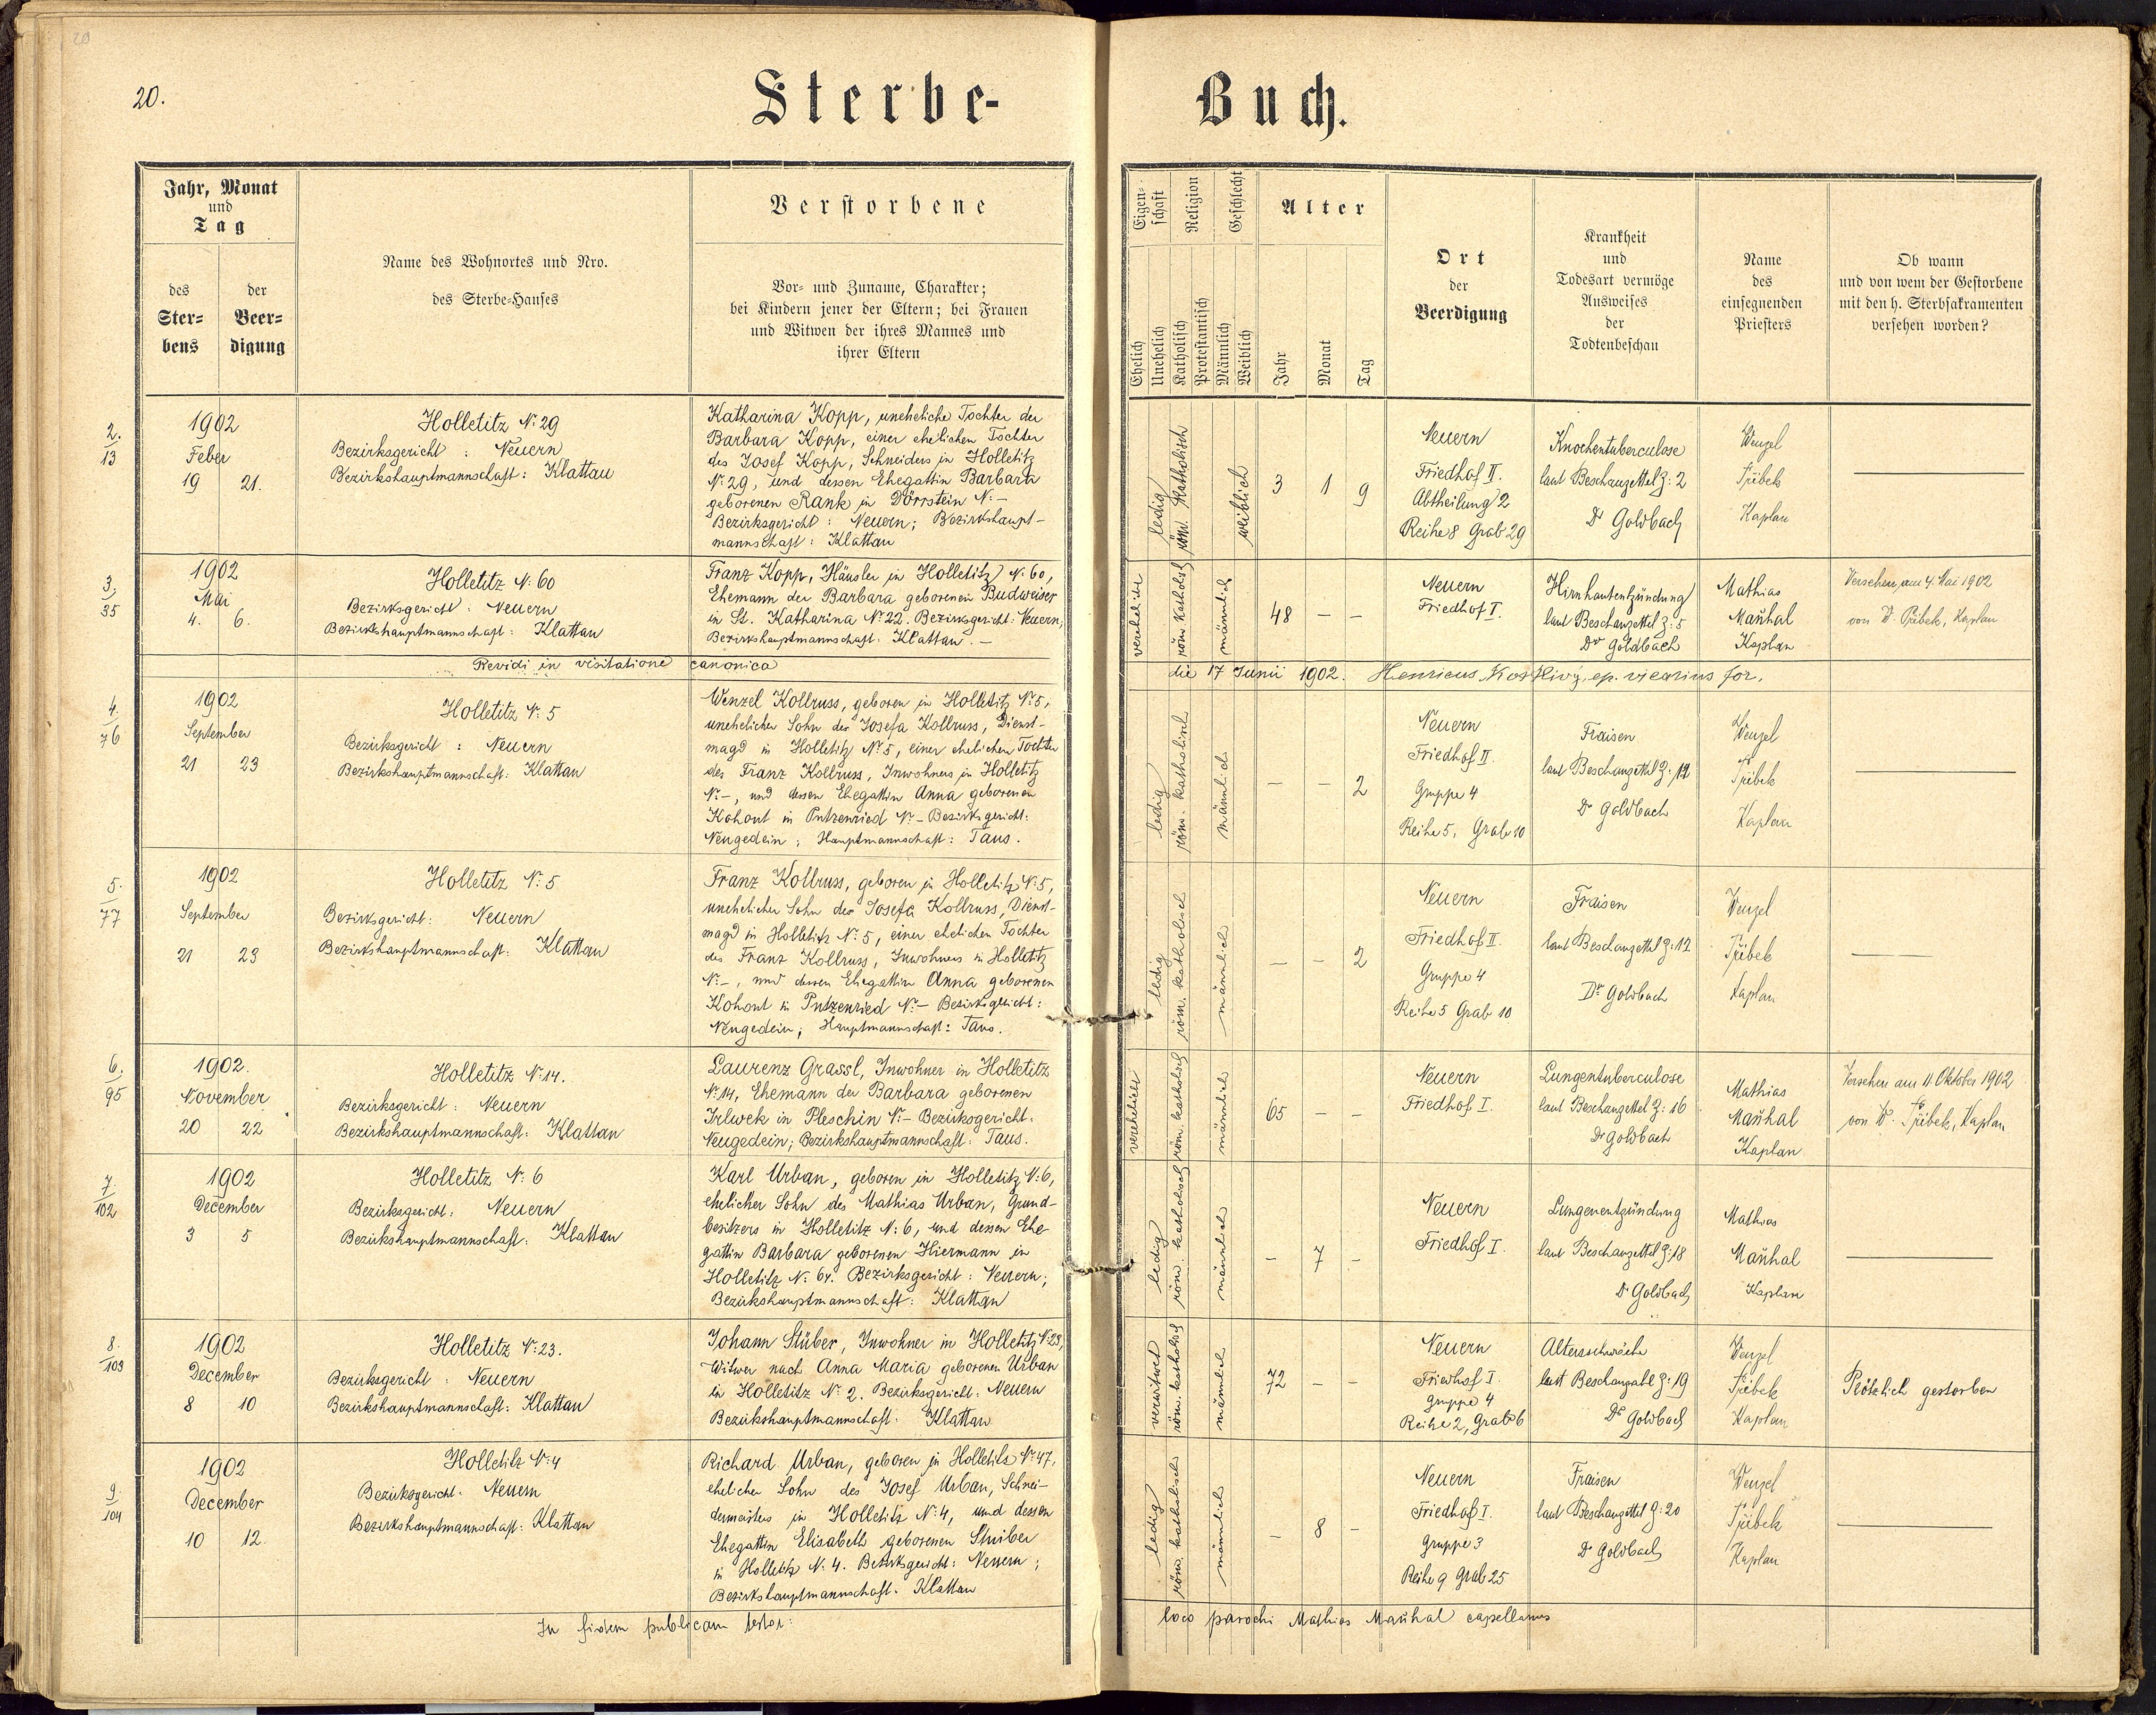 20.
Sterbe-
Jahr, Monat
und
Tag
des
Ster-
bens
der
Beer-
digung
Name des Wohnortes und Nro.
des Sterbe-Hauses
Verstorbene
Vor- und Zuname, Charakter;
bei Kindern jener der Eltern; bei Frauen
und Witwen der ihres Mannes und
ihrer Eltern
2.
13
1902
Feber
19 21.
Holletitz N: 29
Bezirksgericht : Neuern
Bezirkshauptmannschaft: Klattau
Katharina Kopp, uneheliche Tochter der
Barbara Kopp, einer ehelichen Tochter
des Josef Kopp, Schneiders in Holletitz
N: 29, und dessen Ehegattin Barbara
geborenen Rank in Dörrstein N: –
Bezirksgericht : Neuern; Bezirkshaupt-
mannschaft: Klattau
3,
35
1902
Mai
4. 6.
Holletitz N: 60
Bezirksgericht : Neuern
Bezirkshauptmannschaft: Klattau
Franz Kopp, Häusler in Holletitz N: 60,
Ehemann der Barbara geborenen Budweiser
in St. Katharina N: 22. Bezirksgericht: Neuern,
Bezirkshauptmannschaft: Klattau. –
Revidi in visitatione canonica
4.
76
1902
September
21 23
Holletitz N: 5
Bezirksgericht : Neuern
Bezirkshauptmannschaft: Klattau
Wenzel Kollruss, geboren in Holletitz N: 5,
unehelicher Sohn der Josefa Kollruss, Dienst-
magd in Holletitz N: 5, einer ehelichen Tochter
des Franz Kollruss, Inwohners in Holletitz
N: –, und dessen Ehegattin Anna geborenen
Kohout in Putzenried N: – Bezirksgericht:
Neugedein; Hauptmannschaft: Taus.
5.
77
1902
September
21 23
Holletitz N: 5
Bezirksgericht: Neuern
Bezirkshauptmannschaft: Klattau
Franz Kollruss, geboren in Holletitz N: 5,
unehelicher Sohn der Josefa Kollruss, Dienst-
magd in Holletitz N: 5, einer ehelichen Tochter
des Franz Kollruss, Inwohners in Holletitz
N: –, und dessen Ehegattin Anna geborenen
Kohout in Putzenried N: – Bezirksgericht:
Neugedein; Hauptmannschaft: Taus.
6.
95
1902.
November
20 22
Holletitz N: 14.
Bezirksgericht : Neuern
Bezirkshauptmannschaft: Klattau
Laurenz Grassl, Inwohner in Holletitz
N: 14, Ehemann der Barbara geborenen
Irlwek in Pleschin N: – Bezirksgericht:
Neugedein; Bezirkshauptmannschaft: Taus.
7.
102
1902
December
3 5
Holletitz N: 6
Bezirksgericht: Neuern
Bezirkshauptmannschaft: Klattau
Karl Urban, geboren in Holletitz N: 6,
ehelicher Sohn des Mathias Urban, Grund-
besitzers in Holletitz N: 6, und dessen Ehe-
gattin Barbara geborenen Hiermann in
Holletitz N: 64. Bezirksgericht: Neuern;
Bezirkshauptmannschaft: Klattau
8.
103
1902
December
8 10
Holletitz N: 23.
Bezirksgericht : Neuern
Bezirkshauptmannschaft: Klattau
Johann Stüber, Inwohner in Holletitz N: 23,
Witwer nach Anna Maria geborenen Urban
in Holletitz N: 2. Bezirksgericht: Neuern
Bezirkshauptmannschaft: Klattau
9.
104
1902
December
10 12.
Holletitz N: 4
Bezirksgericht: Neuern
Bezirkshauptmannschaft: Klattau
Richard Urban, geboren in Holletitz N: 47,
ehelicher Sohn des Josef Urban, Schnei-
dermeisters in Holletitz N: 4, und dessen
Ehegattin Elisabeth geborenen Streiber
in Holletitz N: 4. Bezirksgericht: Neuern;
Bezirkshauptmannschaft: Klattau
In fidem publicam testor:
Buch.
Eigen-
schaft
Religion
Geschlecht
Alter
Ehelich
Unehelich
Katholisch
Protestantisch
Männlich
Weiblich
Jahr
Monat
Tag
Ort
der
Beerdigung
Krankheit
und
Todesart vermöge
Ausweises
der
Todtenbeschau
Name
des
einsegnenden
Priesters
Ob wann
und von wem der Gestorbene
mit den h. Sterbsakramenten
versehen worden?
ledig
röm. katholisch
weiblich
3 1 9
Neuern
Friedhof II.
Abtheilung 2
Reihe 8 Grab 29
Knochentuberculose
laut Beschauzettel Z: 2
Dr Goldbach
Wenzel
Přibek
Kaplan
verehelicht
röm. katholisch
männlich
48 – –
Neuern
Friedhof I.
Hirnhautentzündung
laut Beschauzettel Z: 5
Dr Goldbach
Mathias
Maňhal
Kaplan
Versehen am 4. Mai 1902
von W. Přibek, Kaplan
die 17 Junii 1902. Henricus Kostlivý, ep. vicarius for.
ledig
röm. katholisch
männlich
– – 2
Neuern
Friedhof II.
Gruppe 4
Reihe 5, Grab 10
Fraisen
laut Beschauzettel Z: 12
Dr Goldbach
Wenzel
Přibek
Kaplan
ledig
röm. katholisch
männlich
– – 2
Neuern
Friedhof II.
Gruppe 4
Reihe 5 Grab 10
Fraisen
laut Beschauzettel Z: 12
Dr Goldbach
Wenzel
Přibek
Kaplan
verehelicht
röm. katholisch
männlich
65 – –
Neuern
Friedhof I.
Lungentuberculose
laut Beschauzettel Z: 16
Dr Goldbach
Mathias
Maňhal
Kaplan
Versehen am 11 Oktober 1902
von W. Přibek, Kaplan
ledig
röm. katholisch
männlich
– 7 –
Neuern
Friedhof I.
Lungenentzündung
laut Beschauzettel Z: 18
Dr Goldbach
Mathias
Maňhal
Kaplan
verwitwet
röm. katholisch
männlich
72 – –
Neuern
Friedhof I.
Gruppe 4
Reihe 2, Grab 6
Altersschwäche
laut Beschauzettel Z: 19
Dr Goldbach
Wenzel
Přibek
Kaplan
Plötzlich gestorben
ledig
röm. katholisch
männlich
– 8 –
Neuern
Friedhof I.
Gruppe 3
Reihe 9 Grab 25
Fraisen
laut Beschauzettel Z: 20
Dr Goldbach
Wenzel
Přibek
Kaplan
loco parochi Mathias Maňhal capellanus